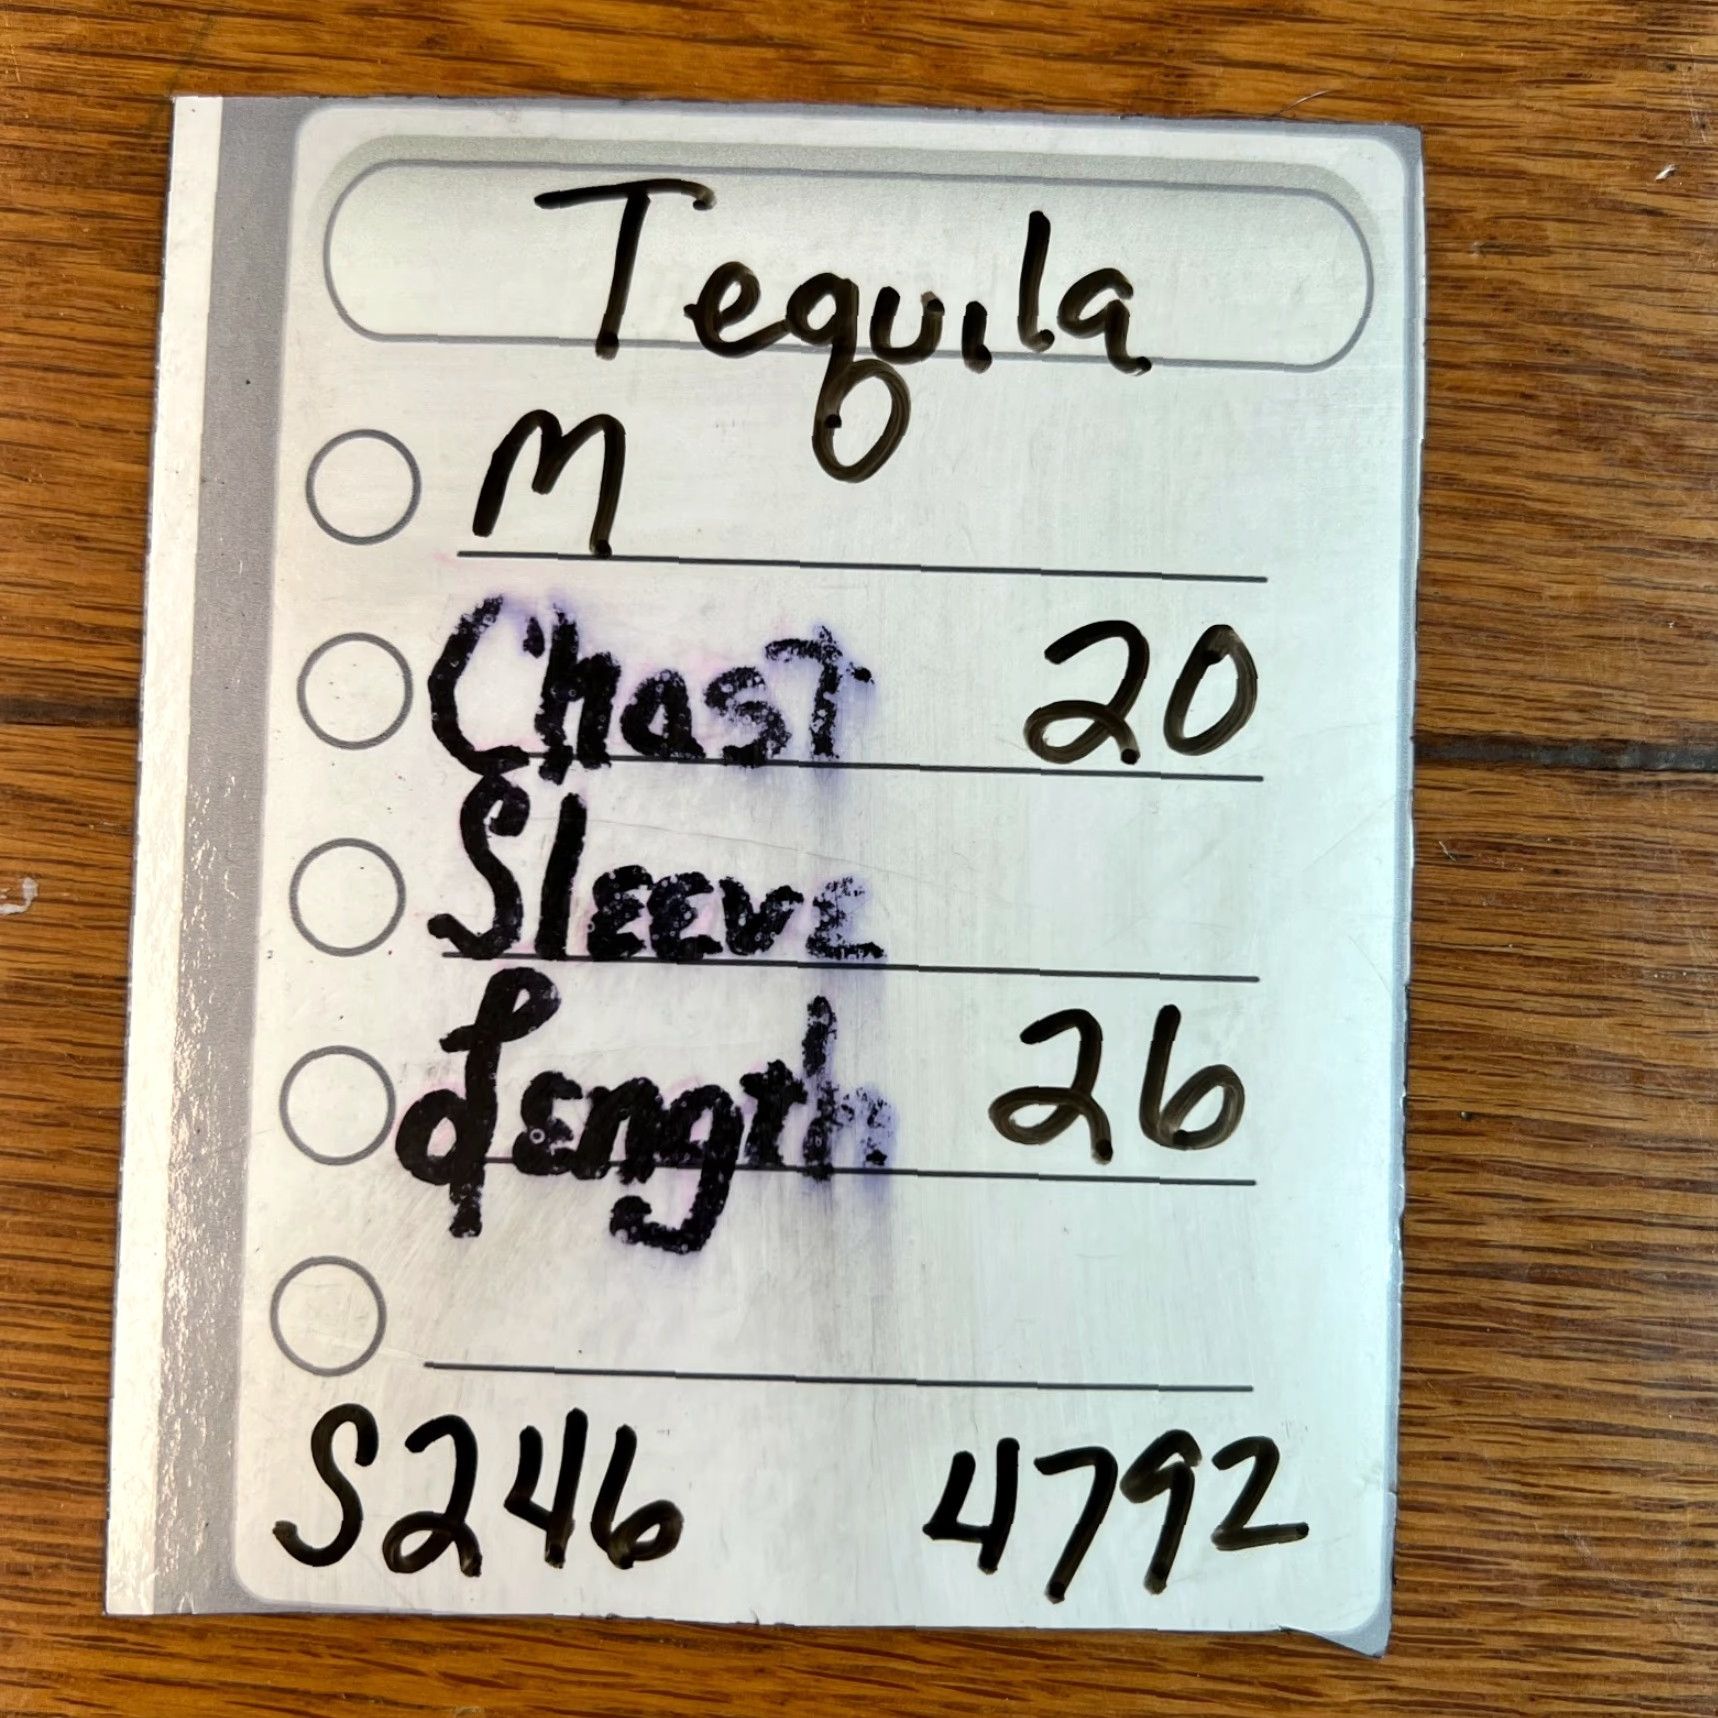 Tequila
M
Chast 20
Sleeve
Length 26
S246 4792